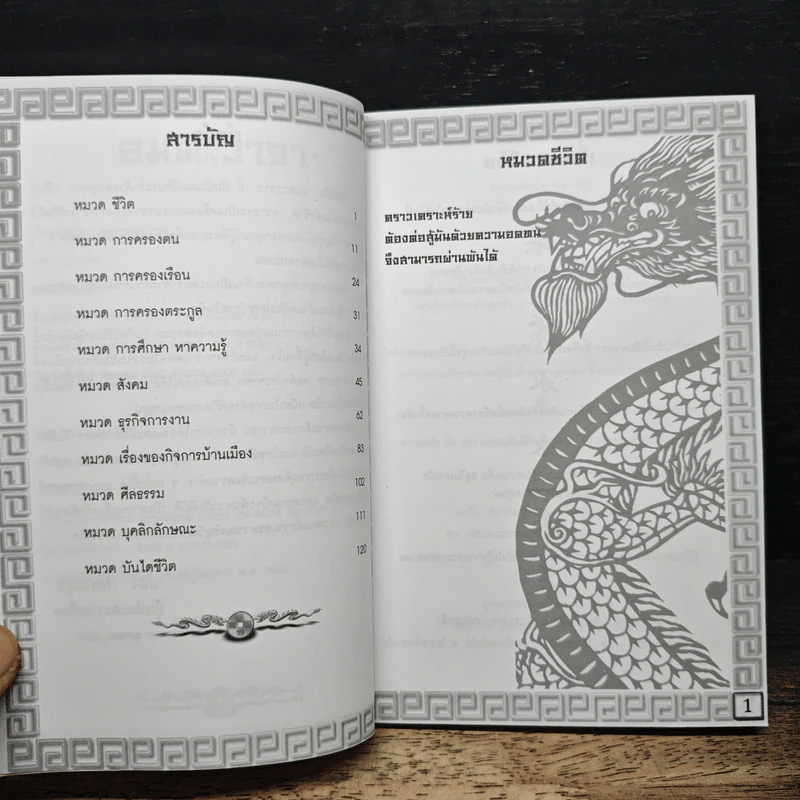 สารบัญ
หมวด ชีวิต 1
หมวด การครองตน 11
หมวด การครองเรือน 24
หมวด การครองตระกูล 31
หมวด การศึกษา หาความรู้ 34
หมวด สังคม 45
หมวด ธุรกิจการงาน 62
หมวด เรื่องของกิจการบ้านเมือง 83
หมวด ศีลธรรม 102
หมวด บุคลิกลักษณะ 111
หมวด บันไดชีวิต 120
หมวดชีวิต
คราวเคราะห์ร้าย
ต้องต่อสู้มันด้วยความอดทน
จึงสามารถผ่านพ้นได้
1